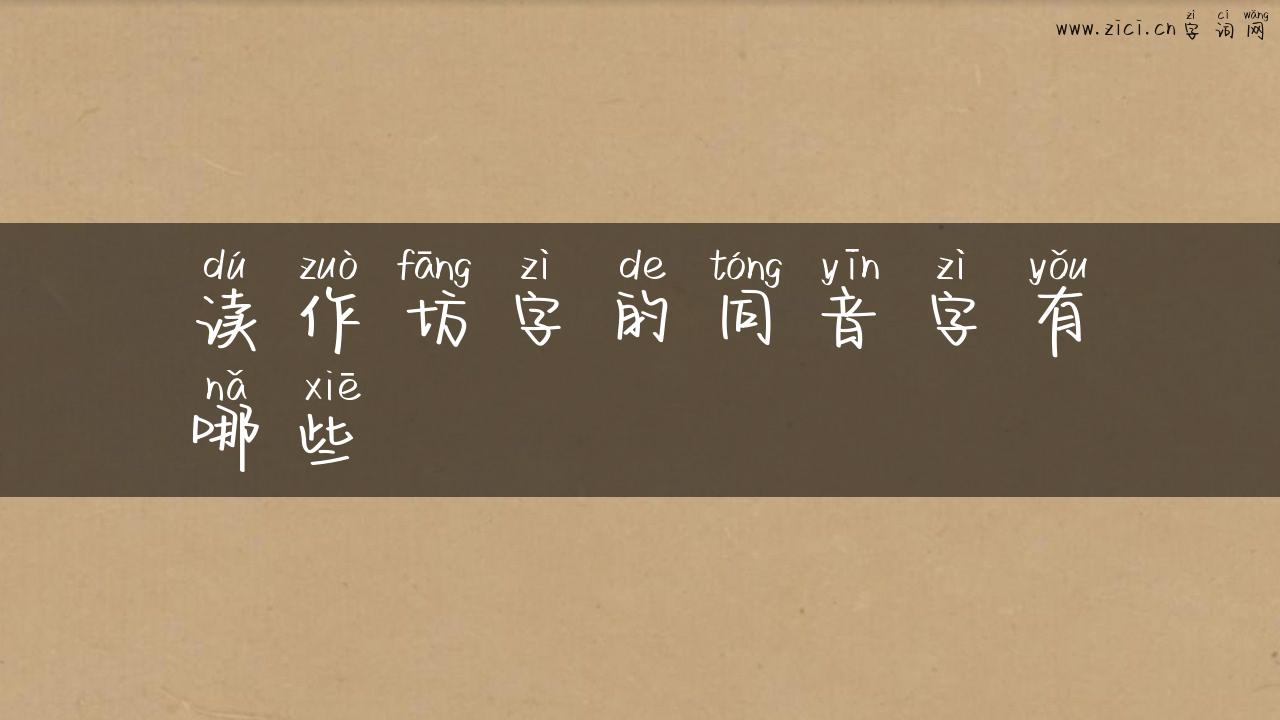 zì cí wǎng
www.zici.cn 字词网
dú zuò fāng zì de tóng yīn zì yǒu
读作坊字的同音字有
nǎ xiē
哪些